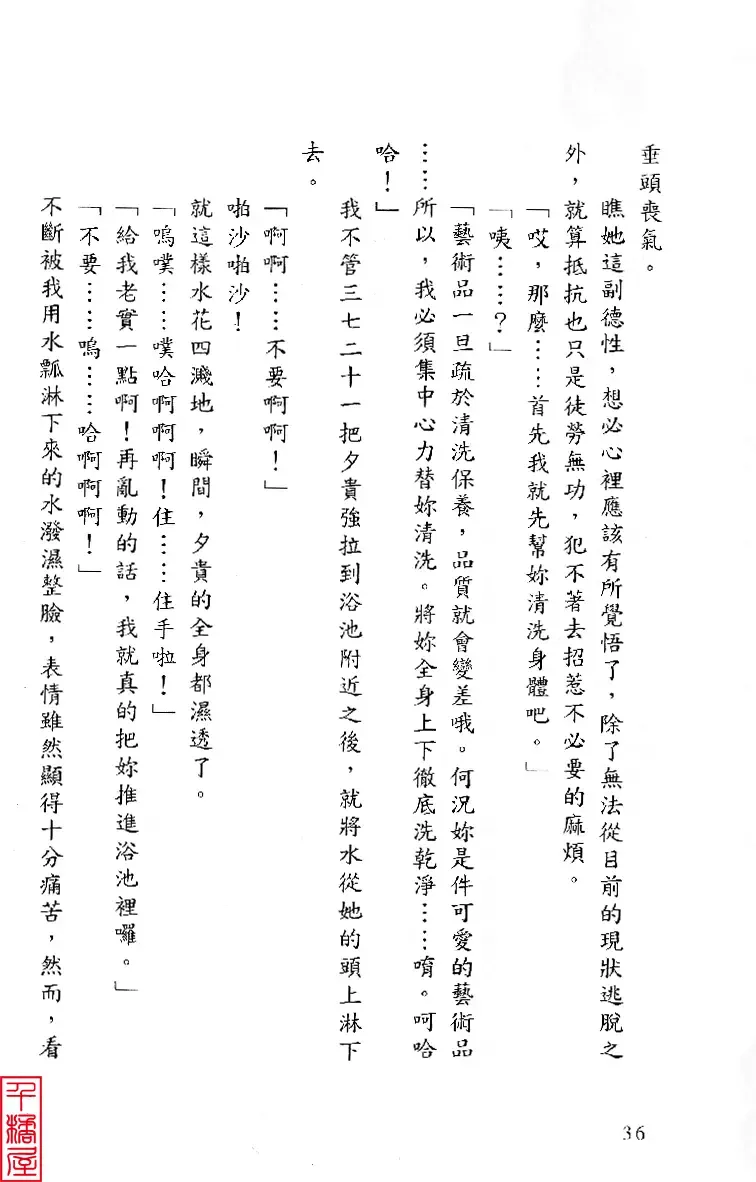 垂頭喪氣。
瞧她這副德性，想必心裡應該有所覺悟了，除了無法從目前的現狀逃脫之
外，就算抵抗也只是徒勞無功，犯不著去招惹不必要的麻煩。
「哎，那麼……首先我就先幫妳清洗身體吧。」
「咦……？」
「藝術品一旦疏於清洗保養，品質就會變差哦。何況妳是件可愛的藝術品
……所以，我必須集中心力替妳清洗。將妳全身上下徹底洗乾淨……唷。呵哈
哈！」
我不管三七二十一把夕貴強拉到浴池附近之後，就將水從她的頭上淋下
去。
「啊啊……不要啊啊！」
啪沙啪沙！
就這樣水花四濺地，瞬間，夕貴的全身都濕透了。
「嗚噗……噗哈啊啊啊！住……住手啦！」
「給我老實一點啊！再亂動的話，我就真的把妳推進浴池裡囉。」
「不要……嗚……哈啊啊啊！」
不斷被我用水瓢淋下來的水潑濕整臉，表情雖然顯得十分痛苦，然而，看
36